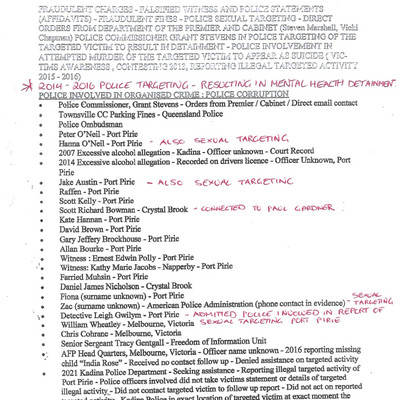 FRAUDULENT CHARGES - FALSIFIED WITNESS AND POLICE STATEMENTS
(AFFIDAVITS) - FRAUDULENT FINES - POLICE SEXUAL TARGETING - DIRECT
ORDERS FROM DEPARTMENT OF THE PREMIER AND CABINET (Steven Marshall, Vicki
Chapman) POLICE COMMISSIONER GRANT STEVENS IN POLICE TARGETING OF THE
TARGETED VICTIM TO RESULT IN DETAINMENT - POLICE INVOLVEMENT IN
ATTEMPTED MURDER OF THE TARGETED VICTIM TO APPEAR AS SUICIDE ( VIC-
TIMS AWARENESS , CONTESTING 2013, REPORTING ILLEGAL TARGETED ACTIVITY
2015 - 2016)
* 2014 - 2016 POLICE TARGETING - RESULTING IN MENTAL HEALTH DETAINMENT
POLICE INVOLVED IN ORGANISED CRIME : POLICE CORRUPTION
• Police Commissioner, Grant Stevens - Orders from Premier / Cabinet / Direct email contact
• Townsville CC Parking Fines - Queensland Police
• Police Ombudsman
• Peter O'Neil - Port Pirie
• Hanna O'Neil - Port Pirie - ALSO SEXUAL TARGETING
• 2007 Excessive alcohol allegation - Kadina - Officer unknown - Court Record
• 2014 Excessive alcohol allegation - Recorded on drivers licence - Officer Unknown, Port
Pirie
• Jake Austin - Port Pirie - ALSO SEXUAL TARGETING
• Raffen - Port Pirie
• Scott Kelly - Port Pirie
• Scott Richard Bowman - Crystal Brook - CONNECTED TO PAUL GARDNER
• Kate Hannan - Port Pirie
• David Brown - Port Pirie
• Gary Jeffery Brockhouse - Port Pirie
• Allan Bourke - Port Pirie
• Witness : Ernest Edwin Polly - Port Pirie
• Witness: Kathy Marie Jacobs - Napperby - Port Pirie
• Farried Muhsin - Port Pirie
• Daniel James Nicholson - Crystal Brook
• Fiona (surname unknown) - Port Pirie
• Zac (surname unknown) - American Police Administration (phone contact in evidence) - SEXUAL TARGETING
• Detective Leigh Gwilym - Port Pirie - ADMITTED POLICE INVOLVED IN REPORT OF
SEXUAL TARGETING PORT PIRIE
• William Wheatley - Melbourne, Victoria
• Chris Cohrane - Melbourne, Victoria
• Senior Sergeant Tracy Gentgall - Freedom of Information Unit
• AFP Head Quarters, Melbourne, Victoria - Officer name unknown - 2016 reporting missing
child "India Rose" - Received no contact follow up - Denied assistance on targeted activity
• 2021 Kadina Police Department - Seeking assistance - Reporting illegal targeted activity of
Port Pirie - Police officers involved did not take victims statement or details of targeted
illegal activity - Did not contact targeted victim to follow up report - Did not act on reported
targeted activity - Kadina Police in exact location of targeted victim at exact moment the